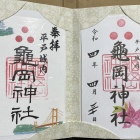 令和四年四月三日
龜岡神社
奉拝
平戸城内
龜岡神社